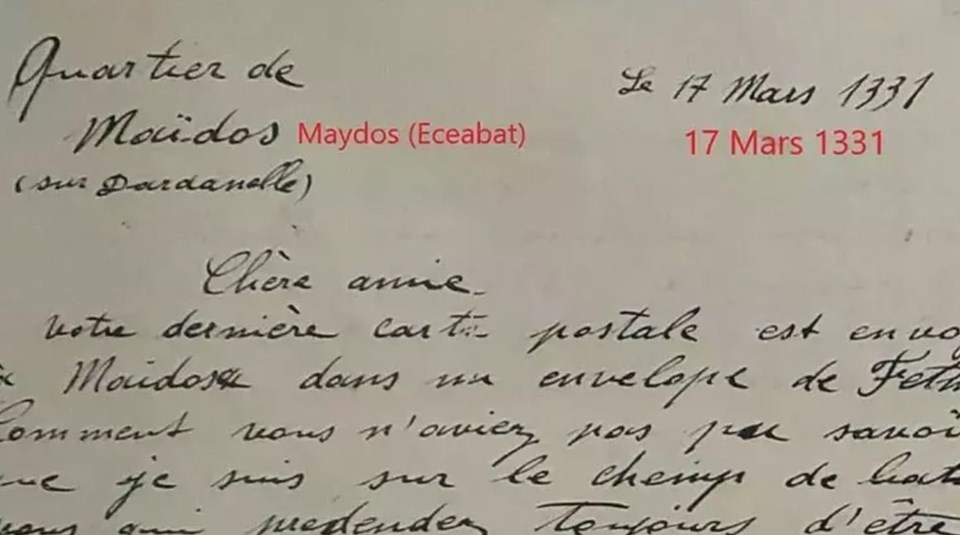 Quartier de
Maïdos Maydos (Eceabat)
(sur Dardanelle)
Le 17 Mars 1331
17 Mars 1331
Chère amie
votre dernière carte postale est envo
Maidos dans un envelope de Feth
Comment vous n'aviez pas pu savoi
que je suis sur le champ de bat
vous qui pretendez Toujours d'être